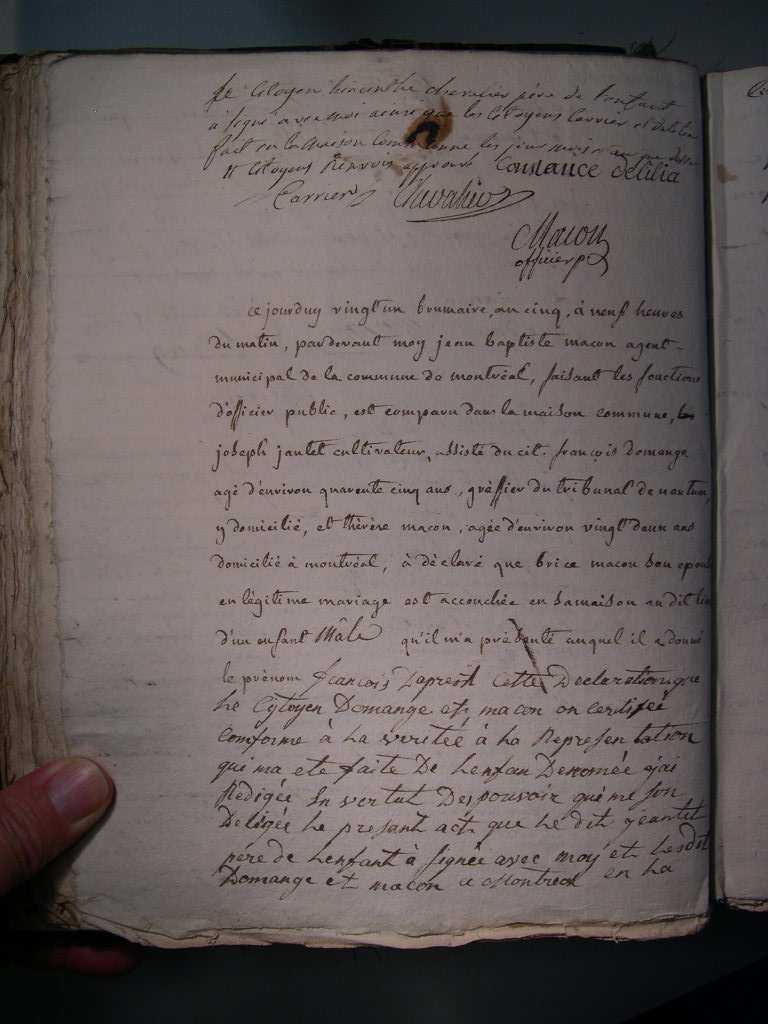 le Citoyen hiacinthe chevalier père de l'enfant
a signé avec moi ainsi que les Citoyens Carrier et delilia
fait en la maison Commune les jour mois et an que dessus
Citoyens Renvois approuvé Constance delilia
Carrier Chevalier
Macon
officier p
ce jourduy vingt un brumaire, an cinq, à neuf heures
du matin, pardevant moy jean baptiste macon agent
municipal de la commune de montréal, faisant les fonctions
d'officier public, est comparu dans la maison commune,
joseph jantet cultivateur, assisté du cit. françois domange
agé d'environ quarente cinq ans, gréffier du tribunal de nantua,
y domicilié, et thérèse macon, agée d'environ vingt deux ans
domicilié à montréal, à déclaré que brice macon son epouse
en légitime mariage est accouchée en sa maison au dit lieu
d'un enfant Mâle qu'il m'a présenté auquel il a donné
le prénom françois Daprest Cette Declaration que
Le Cytoyen Domange et macon on Certifée
Comforme à La veritée à La Representation
qui ma ete faite De Lenfan Denomée j'ai
Redigée En vertut Des pouvoir qui me son
Delégée le presant act que Le dit jeantet
pere de Lenfant à signée avec moy et Lesdit
Domange et macon a Montreal en La